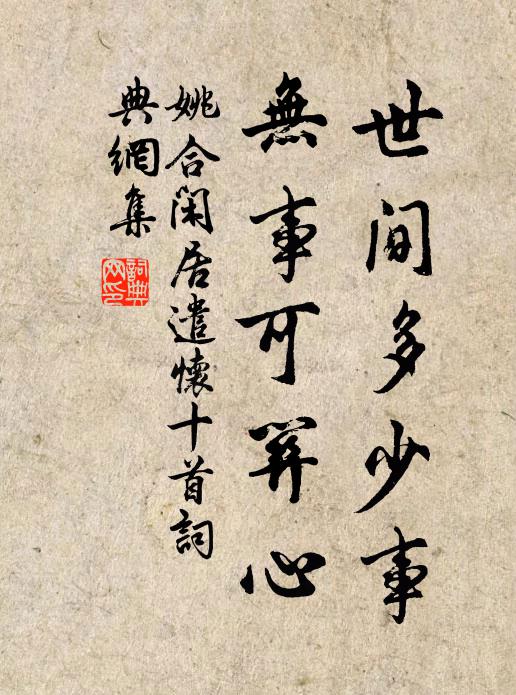 世間多少事
無事可關心
姚合閑居遣懷十首詞
典網集
詞典
网印